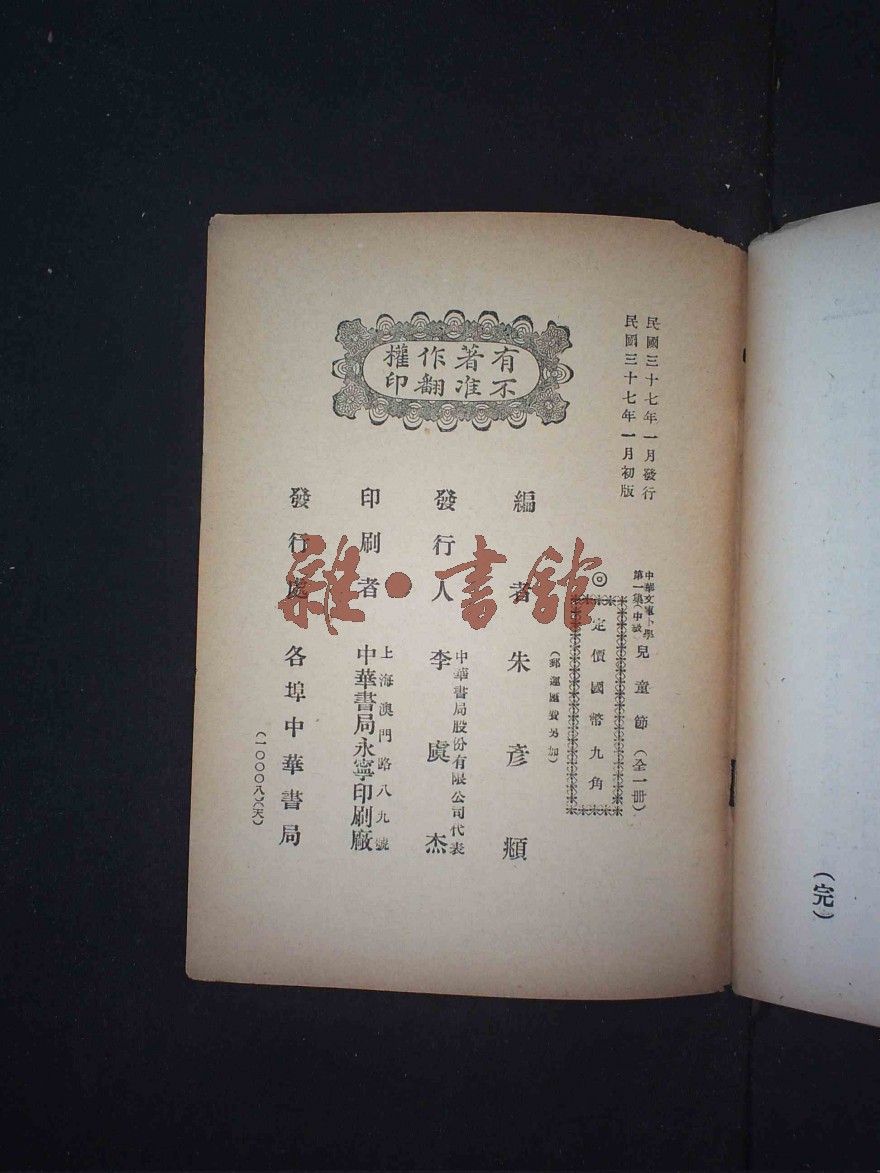 民國三十七年一月發行
民國三十七年一月初版
有著作權
不准翻印
中華文庫小學
第一集(中級)
兒童節(全一冊)
◎
定價國幣九角
(郵運匯費另加)
編者 朱彥頫
發行人 李虞杰
中華書局股份有限公司代表
印刷者
上海澳門路八九號
中華書局永寧印刷廠
發行處 各埠中華書局
(一〇〇〇八)(天)
(完)
雜·書館